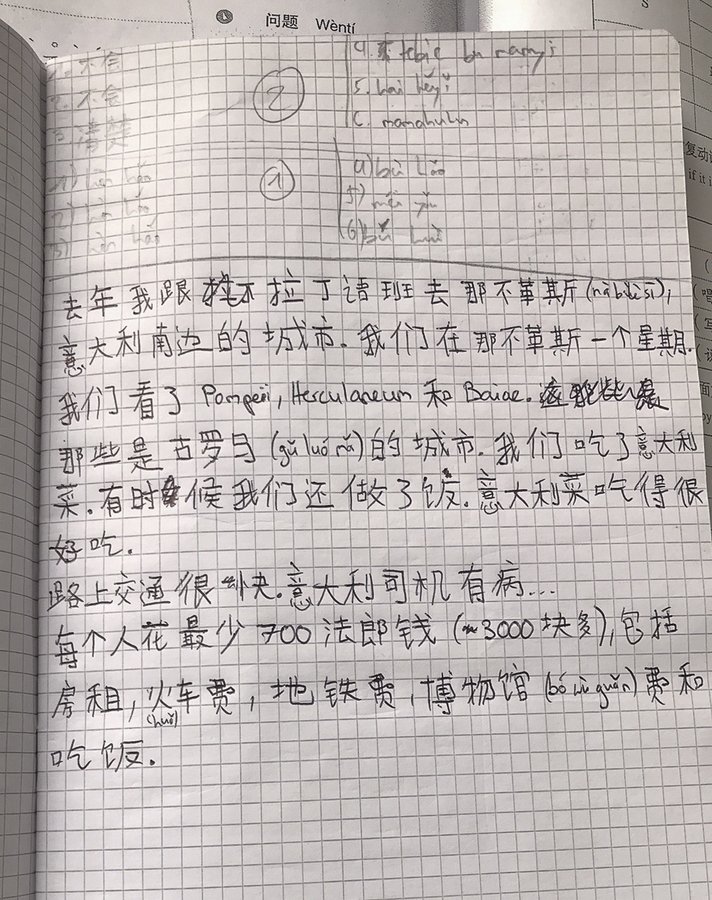 问题 Wèntí
复动词
if it i
1. 不会
2. 不会
3. 清楚
②
5. hái kěyǐ
6. mamahuhu
①
4) bù hǎo
去年我跟拉丁语班去那不革斯(nàbùlèsī),
意大利南边的城市. 我们在那不革斯一个星期.
我们看了 Pompeii, Herculaneum 和 Baiae.
那些是古罗马 (gǔ luó mǎ) 的城市. 我们吃了意大利
菜. 有时候我们还做了饭. 意大利菜吃得很
好吃.
路上交通很快. 意大利司机有病...
每个人花最少 700 法郎钱 (~3000 块多), 包括
房租, 火车费, 地铁费, 博物馆 (bó wù guǎn) 费和
(huǒ)
吃饭.